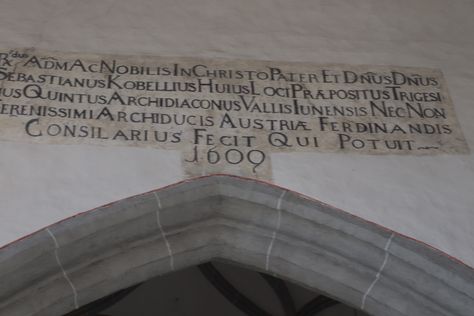 R.dus AdmAc Nobilis In Christo Pater Et Dñus Dñus
Sebastianus Kobellius Huius Loci Præpositus Trigesi
mus Quintus Archidiaconus Vallis Iunensis Nec Non
Serenissimi Archiducis Austriæ Ferdinandis
Consilarius Fecit Qui Potuit
1609